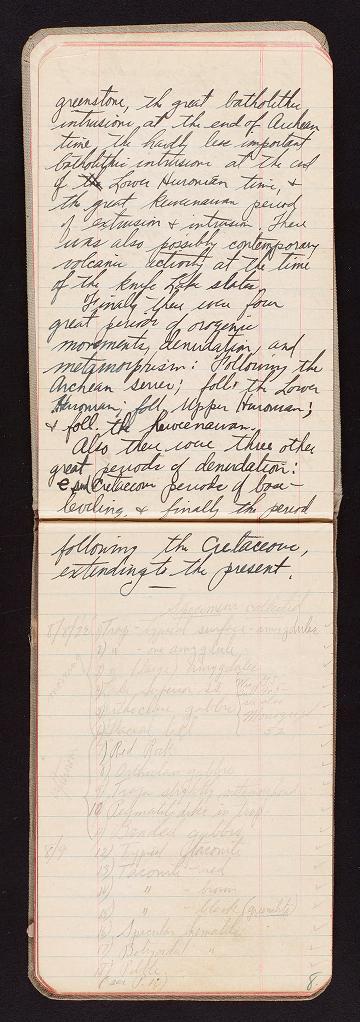 greenstone, the great batholithic
intrusions, at the end of Archean
time, the hardly less important
batholithic intrusions at the end
of the Lower Huronian time, &
the great Keweenawan period
of extrusion & intrusion. There
was also possibly contemporary
volcanic activity at the time
of the Knife Lake slates.
Finally there were four
great periods of orogenic
movements, denudation, and
metamorphism: Following the
Archean series; foll. the Lower
Huronian; foll. Upper Huronian;
& foll. the Keweenawan.
Also there were three other
great periods of denudation:
Cretaceous periods of base-
leveling, & finally the period
following the Cretaceous,
extending to the present.
Specimens collected
Trap - typical surface - amygdules
2) " - one amygdule
3) " (large) amygdules
Superior
gabbro
Monograph
52
7) Red Rock
8) gabbro
9) Trap slightly
10) Pegmatitic dike in trap
11) Banded gabbro
8/9 12) Typical Taconite
13) Taconite - red
14) " - brown
15) " - black (
16) Specular hematite
17) Botryoidal "
18)
8